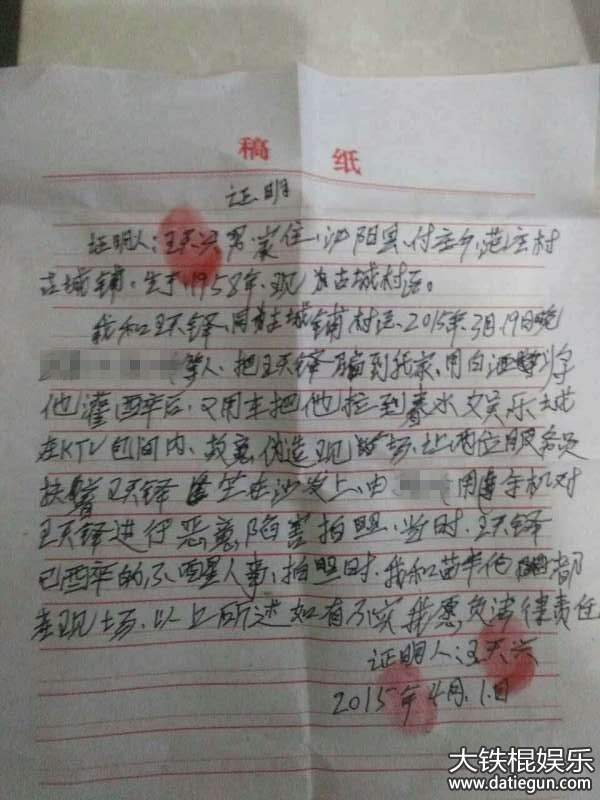 稿 纸
证明
证明人:王天兴 男 家住:泌阳县付庄乡范庄村
古城铺。生于1958年.现为古城村民。
我和王天铎.同为古城铺村民.2015年3月19日晚
等人.把王天铎骗到我家.用白酒将
他灌醉后.又用车把他拉到春水文娱乐城
在KTV包间内.故意伪造现场.让两位服务员
扶着王天铎坐在沙发上.由 用手机对
王天铎进行恶意陷害拍照.当时.王天铎
已酉卒的不醒人事.拍照时.我和苗 都
在现场.以上所述如有不实我愿负法律责任
证明人:王天兴
2015年4月.1.日
大铁棍娱乐
www.datiegun.com